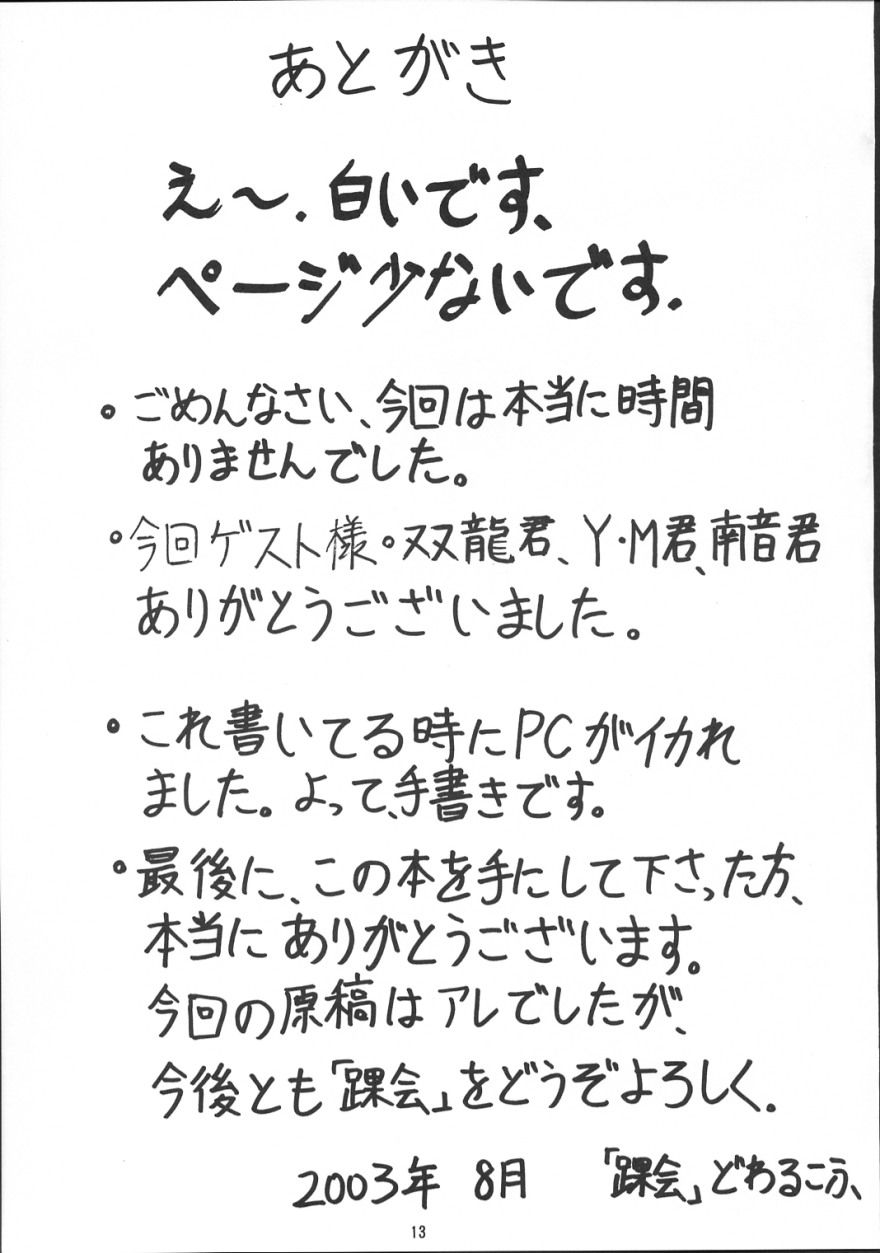 あとがき
え〜．白いです、
ページ少ないです．
。ごめんなさい、今回は本当に時間
ありませんでした。
。今回ゲスト様。双龍君、Y・M君、南音君
ありがとうございました。
。これ書いてる時にPCがイカれ
ました。よって、手書きです。
。最後に、この本を手にして下さった方、
本当にありがとうございます。
今回の原稿はアレでしたが、
今後とも「踝会」をどうぞよろしく．
2003年 8月 「踝会」どわるこふ、
13